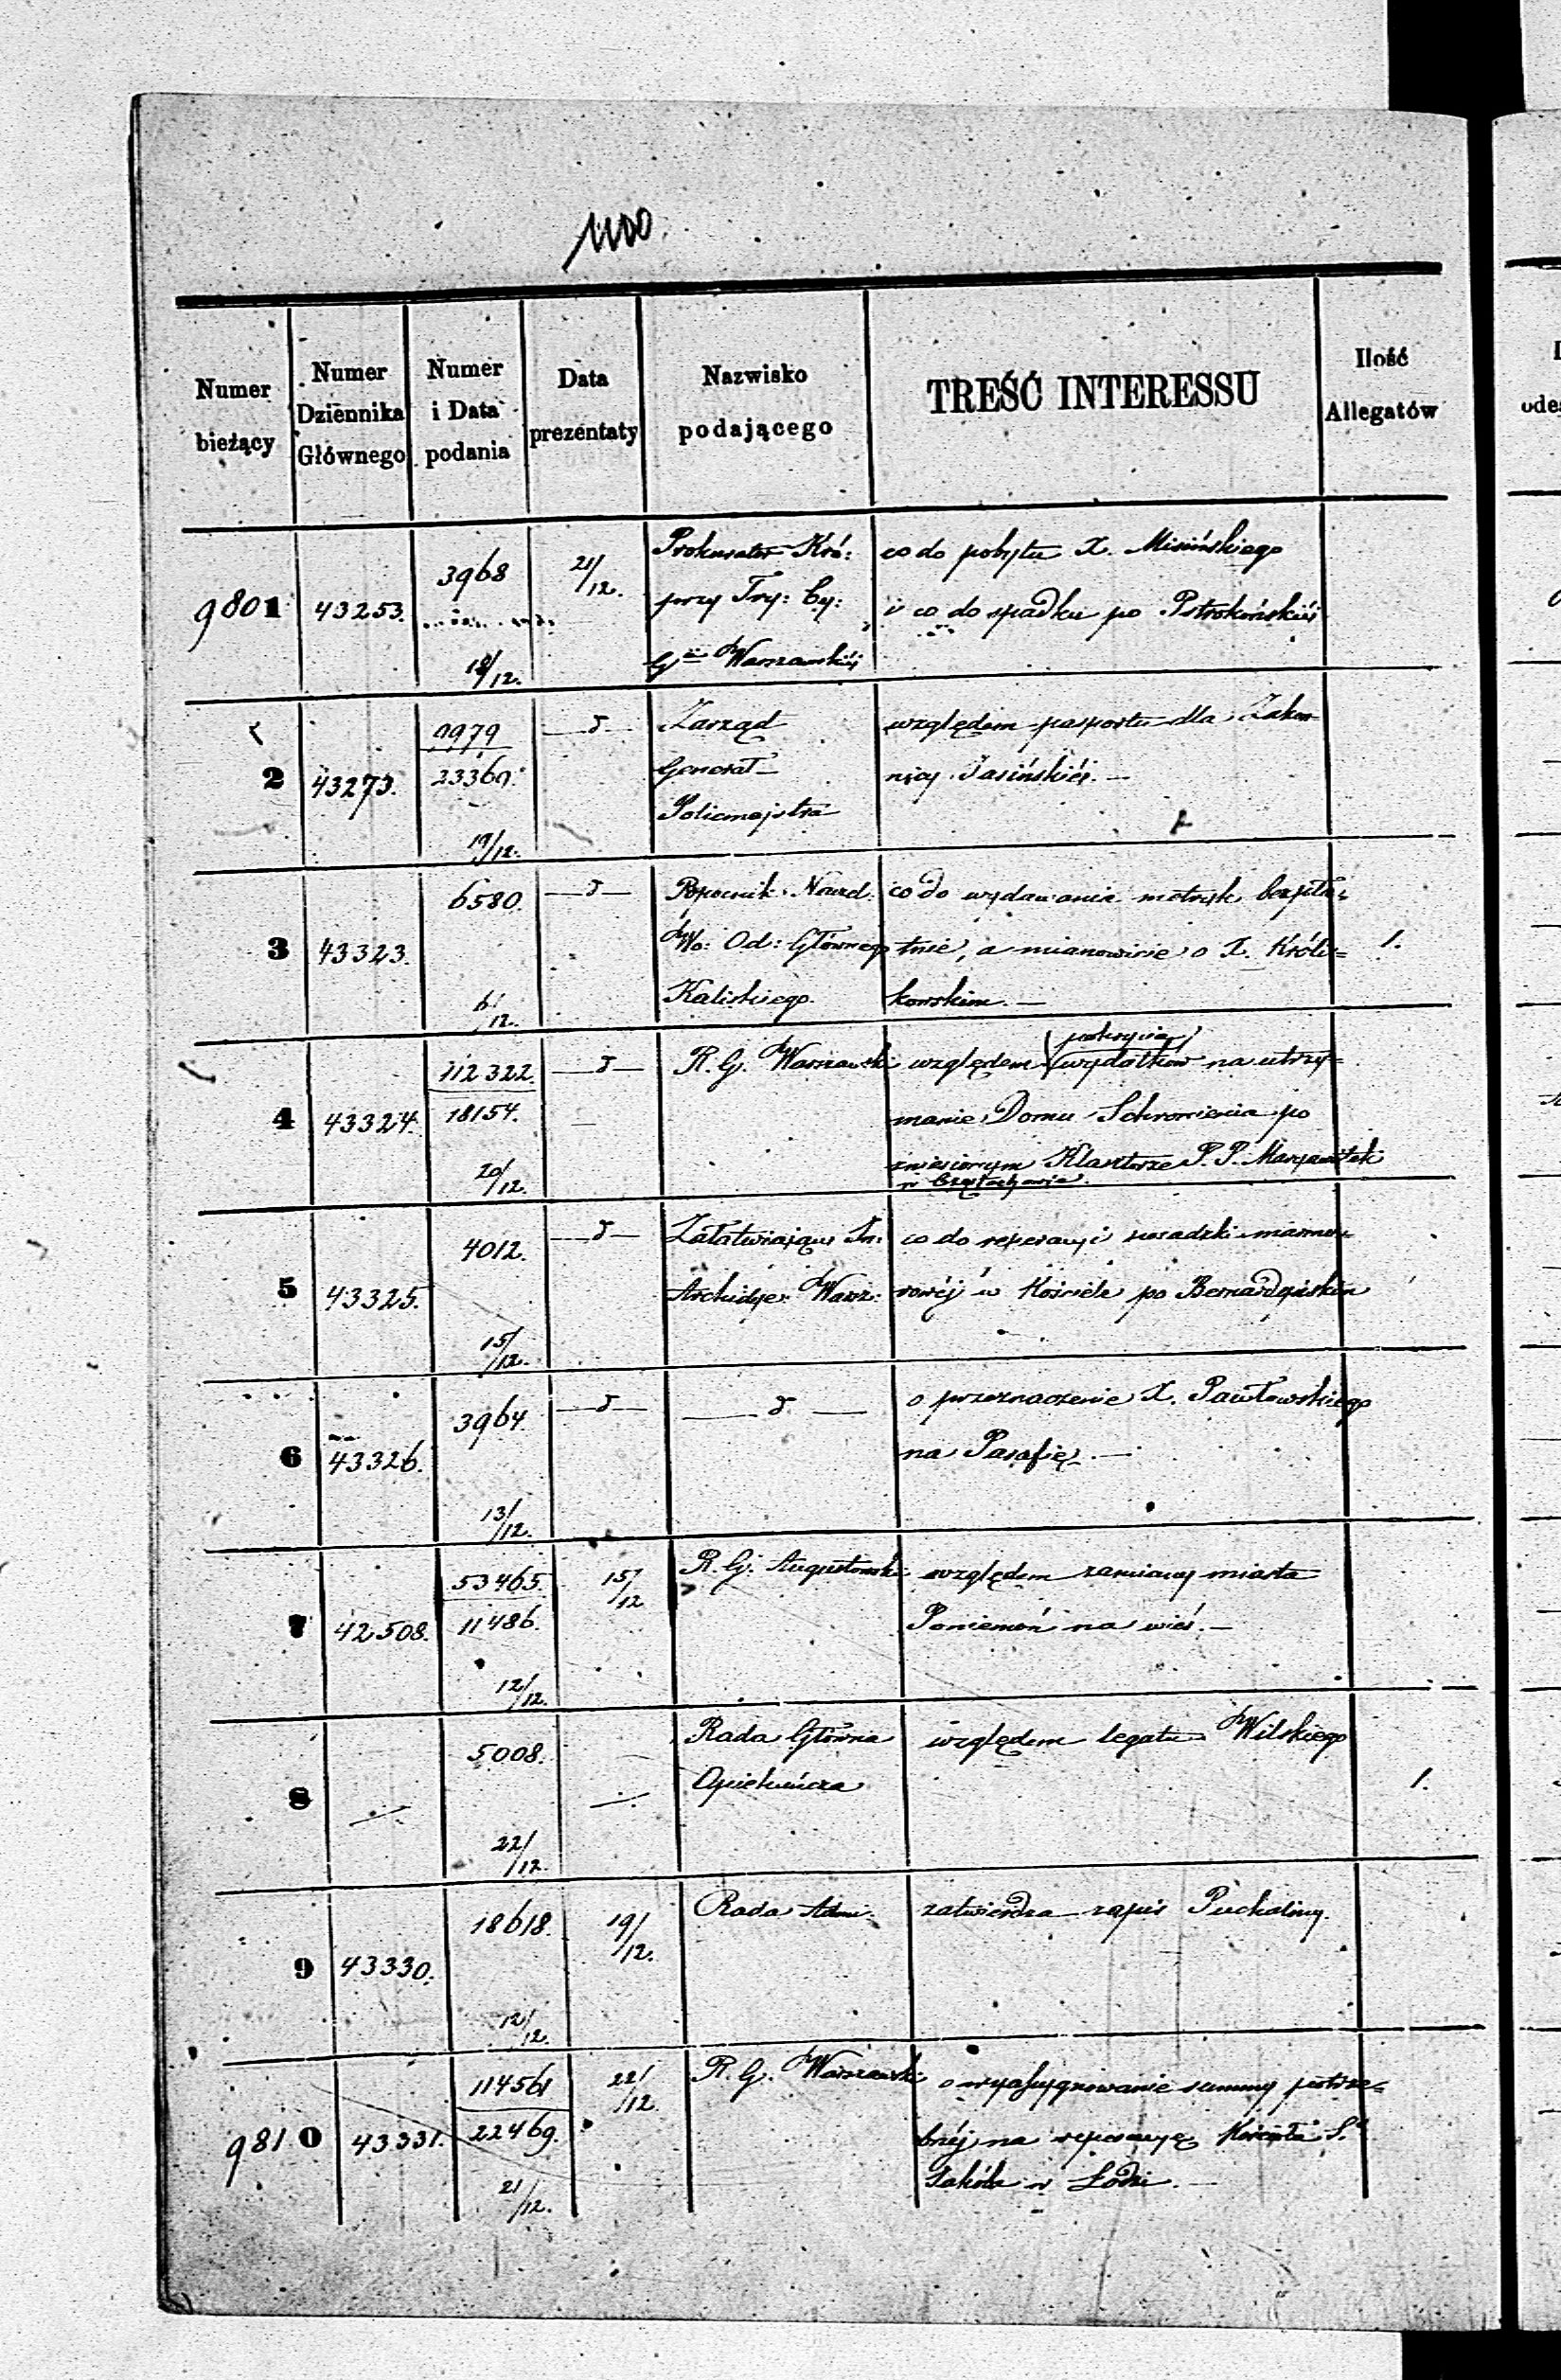 1100
Numer bieżący
Numer Dziennika Głównego
Numer i Data podania
Data prezentaty
Nazwisko podającego
TREŚĆ INTERESSU
Ilość Allegatów
9801 43253. 3968 18/12. 21/12.
Prokurator Kró: co do pobytu X. Misińskiego
przy Try: Cy: i co do spadku po Potrokońskiéj
Gii Warszawskiéj
2 43273. 23369. 19/12. d
Zarząd względem pasportu dla Zakon
Generał nicy Jasińskiéj. —
Policmajstra
3 43323. 6580. 6/12. d
Nacz: co do wydawania metryk bezpła=
Wo: Od: Głównego tnie, a mianowicie o X. Króli= 1.
Kaliskiego. kowskim. —
4 43324. 112322. 18154. 20/12. d
pokrycia
R. G. Warszawski względem wydatków na utrzy=
manie Domu Schronienia po
zniesionym Klasztorze P. P. Maryawitek
w Częstochowie.
5 43325. 4012. 15/12. d
Załatwiający In: co do reperacyi posadzki marmu=
Archidye: Warsz: rowéj w Kościele po Bernardyńskim
6 43326. 3964. 13/12. d d
o przeznaczenie X. Pawłowskiego
na Parafię. —
7 42508. 53465. 11486. 12/12. 15/12
R. G. Augustowski względem zamiany miasta
Poniemoń na wieś. —
8 5008. 22/12.
Rada Główna względem legatu Wilskiego
Opiekuńcza 1.
9 43330. 18618. 12/12. 19/12.
Rada Adm. zatwierdza zapis Puchaliny.
9810 43331. 114561 22469. 21/12. 22/12.
R. G. Warszawski o wyasygnowanie summy potrze=
bnéj na reperacyę Kościoła S.
Jakóba w Łodzi. —